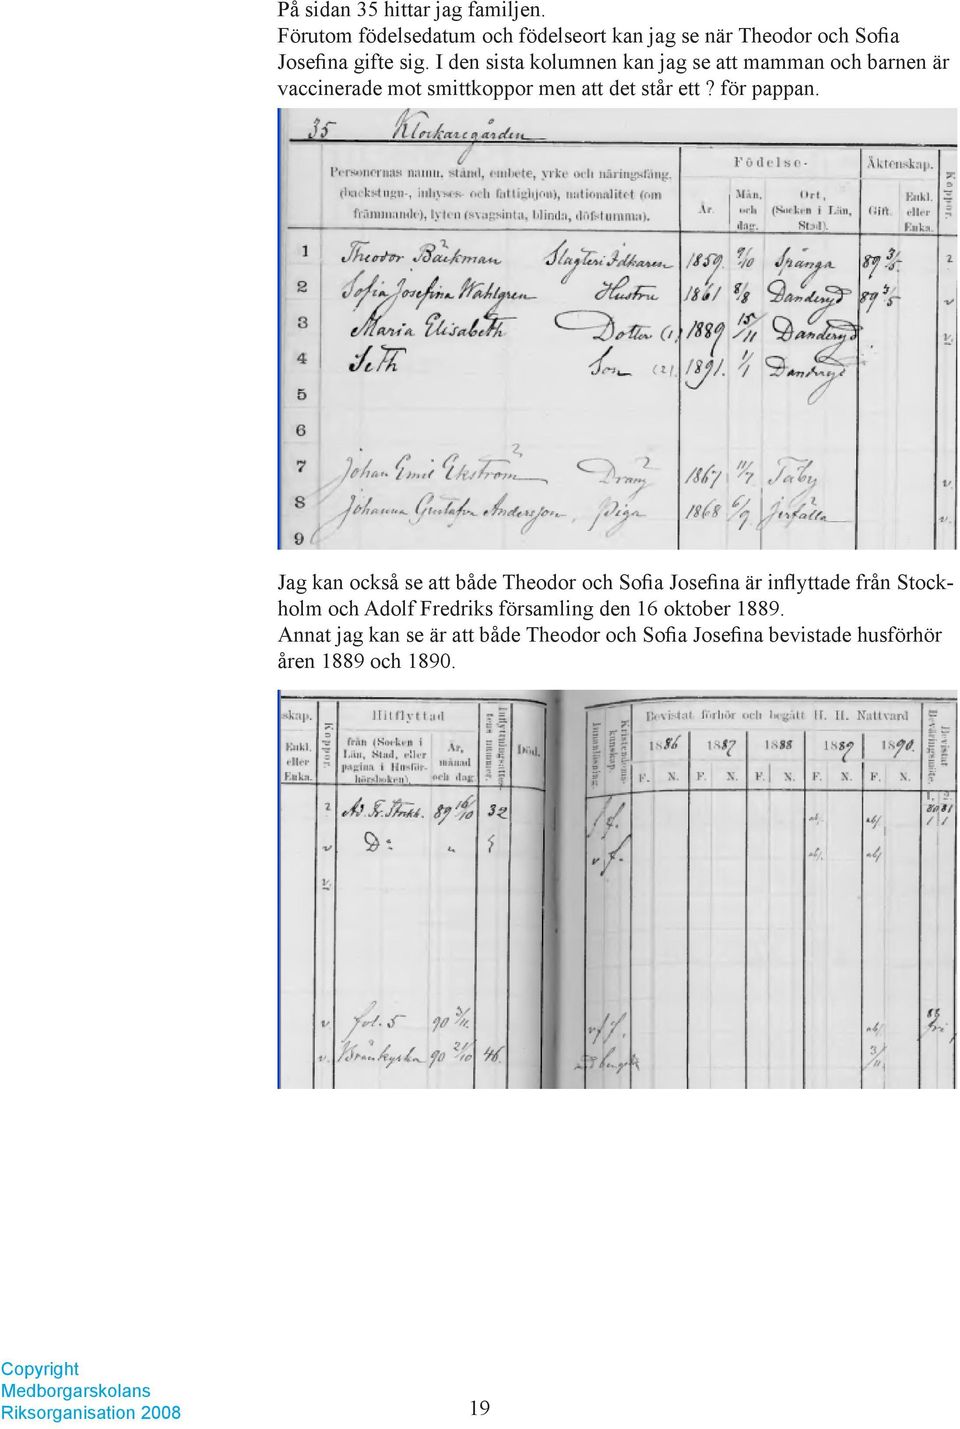 På sidan 35 hittar jag familjen.
Förutom födelsedatum och födelseort kan jag se när Theodor och Sofia
Josefina gifte sig. I den sista kolumnen kan jag se att mamman och barnen är
vaccinerade mot smittkoppor men att det står ett? för pappan.
35 Klockaregården
Personernas namn, stånd, embete, yrke och näringsfång,
(backstugu-, inhyses- och fattighjon), nationalitet (om
främmande), lyten (svagsinta, blinda, döfstumma).
Födelse-
År. Mån. och dag. Ort, (Socken i Län, Stad).
Äktenskap.
Gift. Enkl. eller Enka.
Koppor.
1 Theodor Bäckman Slagteri Idkaren 1859. 9/10 Spånga 89 3/5. ?
2 Sofia Josefina Wahlgren Hustru 1861 8/8 Danderyd 89 3/5 v
3 Maria Elisabeth Dotter (1) 1889 15/11 Danderyd
4 Seth Son (2). 1891. 1/1 Danderyd
5
6
7 Johan Emil Ekström Dräng 1867 11/7 Täby v.
8 Johanna Gustafva Andersson, Piga 1868 6/9. Jerfälla v.
9
Jag kan också se att både Theodor och Sofia Josefina är inflyttade från Stock-
holm och Adolf Fredriks församling den 16 oktober 1889.
Annat jag kan se är att både Theodor och Sofia Josefina bevistade husförhör
åren 1889 och 1890.
skap. Enkl. eller Enka.
Koppor.
Hitflyttad
från (Socken i Län, Stad, eller pagina i Husförhörsboken).
År, månad och dag.
Inflyttningsattestens nummer.
Död.
Innanläsning.
Kristendomskunskap.
Bevistat förhör och begått H. H. Nattvard
1886 1887 1888 1889 1890.
F. N. F. N. F. N. F. N. F. N.
Bevistat Beväringsmöte.
? Ad. Fr. Stockh. 89 16/10 32
v D:o "
v. fol. 5 90 3/11.
v. Brännkyrka 90 21/10 46.
Copyright
Medborgarskolans
Riksorganisation 2008
19